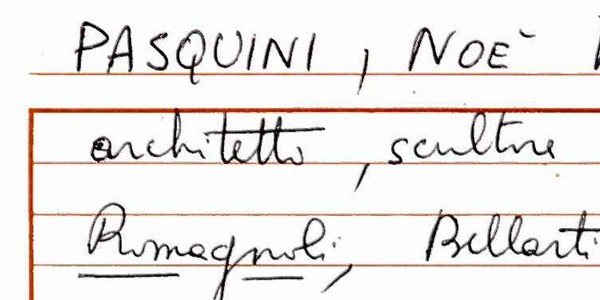 PASQUINI, NOÈ
architetto, scultore
Romagnoli, Bellarti